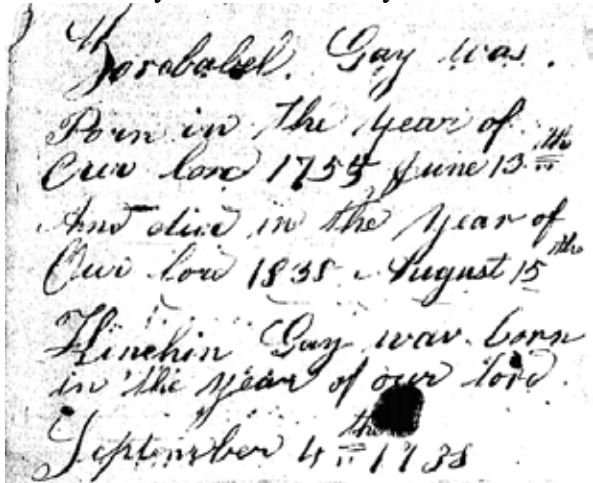 Zorobabel. Gay was.
Born in the year of
Our lord 1755 June 13th
And died in the year of
Our lord 1838 August 15th
Kinchin Gay was born
in the year of our lord.
September 4th 1738